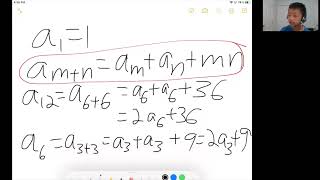 a₁=1
aₘ₊ₙ=aₘ+aₙ+mn
a₁₂=a₆₊₆=a₆+a₆+36
=2a₆+36
a₆=a₃₊₃=a₃+a₃+9=2a₃+9